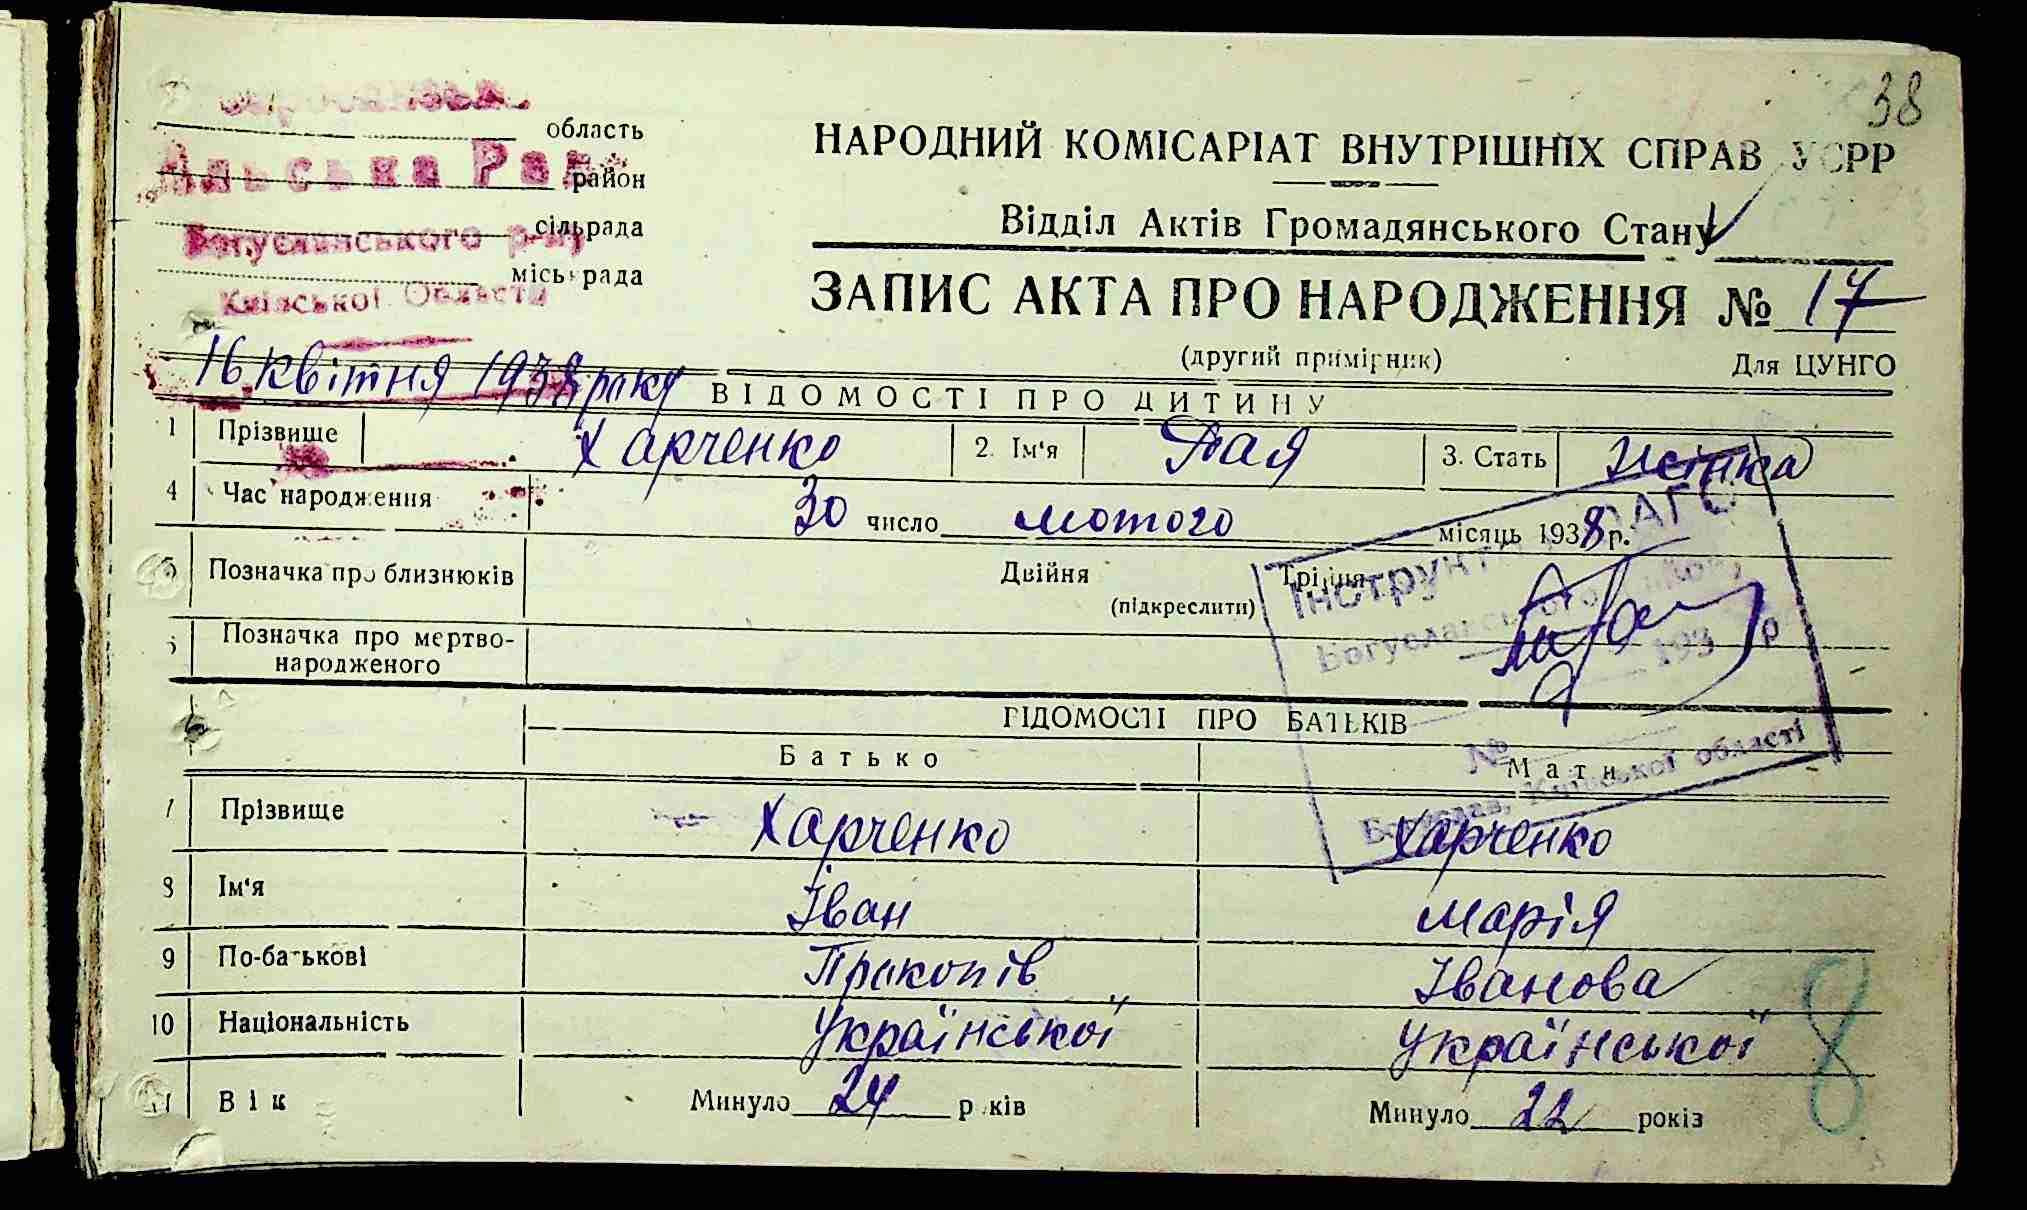 38
область
НАРОДНИЙ КОМІСАРІАТ ВНУТРІШНІХ СПРАВ УСРР
район
Відділ Актів Громадянського Стану
сільрада
Богуславського р-ну
міськрада
Київської Области
ЗАПИС АКТА ПРО НАРОДЖЕННЯ № 17
(другий примірник) Для ЦУНГО
16 квітня 1938 року
ВІДОМОСТІ ПРО ДИТИНУ
1 Прізвище Харченко 2. Ім'я Рая 3. Стать жінка
4 Час народження 30 число лютого місяць 1938 р.
5 Позначка про близнюків Двійня Трійня
(підкреслити)
6 Позначка про мертво-
народженого
Богуславського
193 р
№
Богуслав, Київської області
ВІДОМОСТІ ПРО БАТЬКІВ
Батько Мати
7 Прізвище Харченко Харченко
8 Ім'я Іван Марія
9 По-батькові Прокопів Іванова
10 Національність Української Української
11 Вік Минуло 24 років Минуло 22 років
8